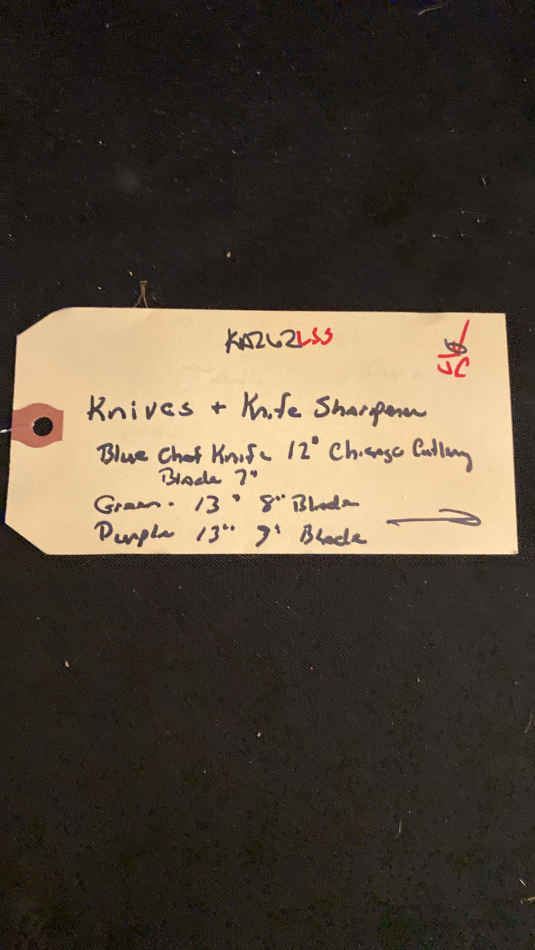 KA262LSS
JC
Knives + Knife Sharpener
Blue Chef Knife 12" Chicago Cutlery
Blade 7"
Green - 13" 8" Blade
Purple 13" 7" Blade